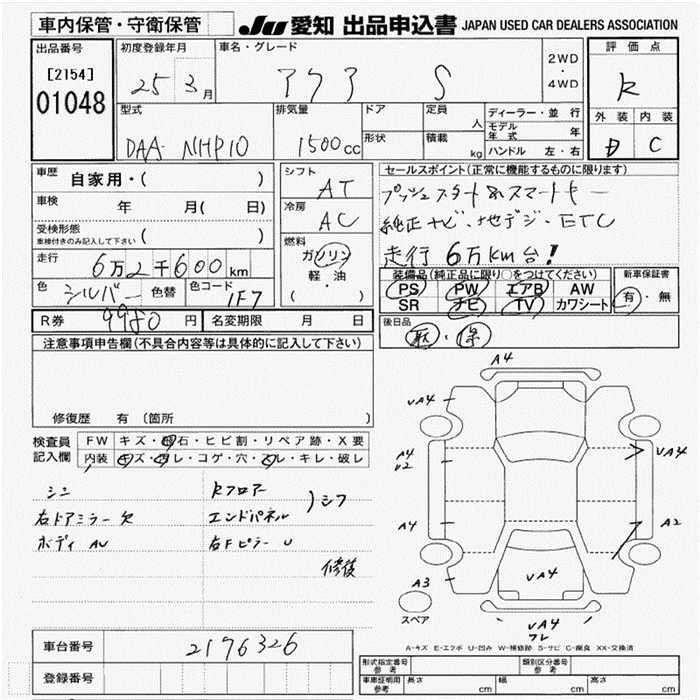 車内保管・守衛保管 JU 愛知 出品申込書 JAPAN USED CAR DEALERS ASSOCIATION
出品番号 初度登録年月 車名・グレード 評価点
[2154] 25 3月 アクア S 2WD・4WD R
01048
型式 排気量 ドア 定員 人 ディーラー・並行 外装 内装
DAA-NHP10 1500cc 形状 積載 kg モデル年式 年 D C
ハンドル 左・右
車歴 自家用・( ) シフト AT セールスポイント(正常に機能するものに限ります)
車検 年 月( 日) 冷房 AC プッシュスタート&スマートキー
受検形態 車検付きのみ記入して下さい ( ) 燃料 ガソリン 軽油 ( ・ ) 純正ナビ・地デジ・ETC
走行 6万2千600km 走行6万km台!
色 シルバー 色替 色コード 1F7 装備品(純正品に限り○をつけてください) 新車保証書
PS PW エアB AW 有・無
SR ナビ TV カワシート
R券 9980円 名変期限 月 日 後日品 取・保
注意事項申告欄(不具合内容等は具体的に記入して下さい)
修復歴 有 (箇所
検査員記入欄 FW キズ・飛石・ヒビ割・リペア跡・X要
内装 キズ・汚レ・コゲ・穴・スレ・キレ・破レ
シミ Rフロアー
右ドアミラー欠 エンドパネル )シフ
ボディ AU 右Fピラー U
修復
A4
UA4
A4
U2
UA4
A4
A2
A3
UA4
スペア
UA4
フレ
A-キズ E-エクボ U-凹み W-補修跡 S-サビ C-腐食 XX-交換済
車台番号 2176326
登録番号
形式指定番号 参考 類別区分番号 参考
車庫証明用 参考 長さ cm 幅 cm 高さ cm